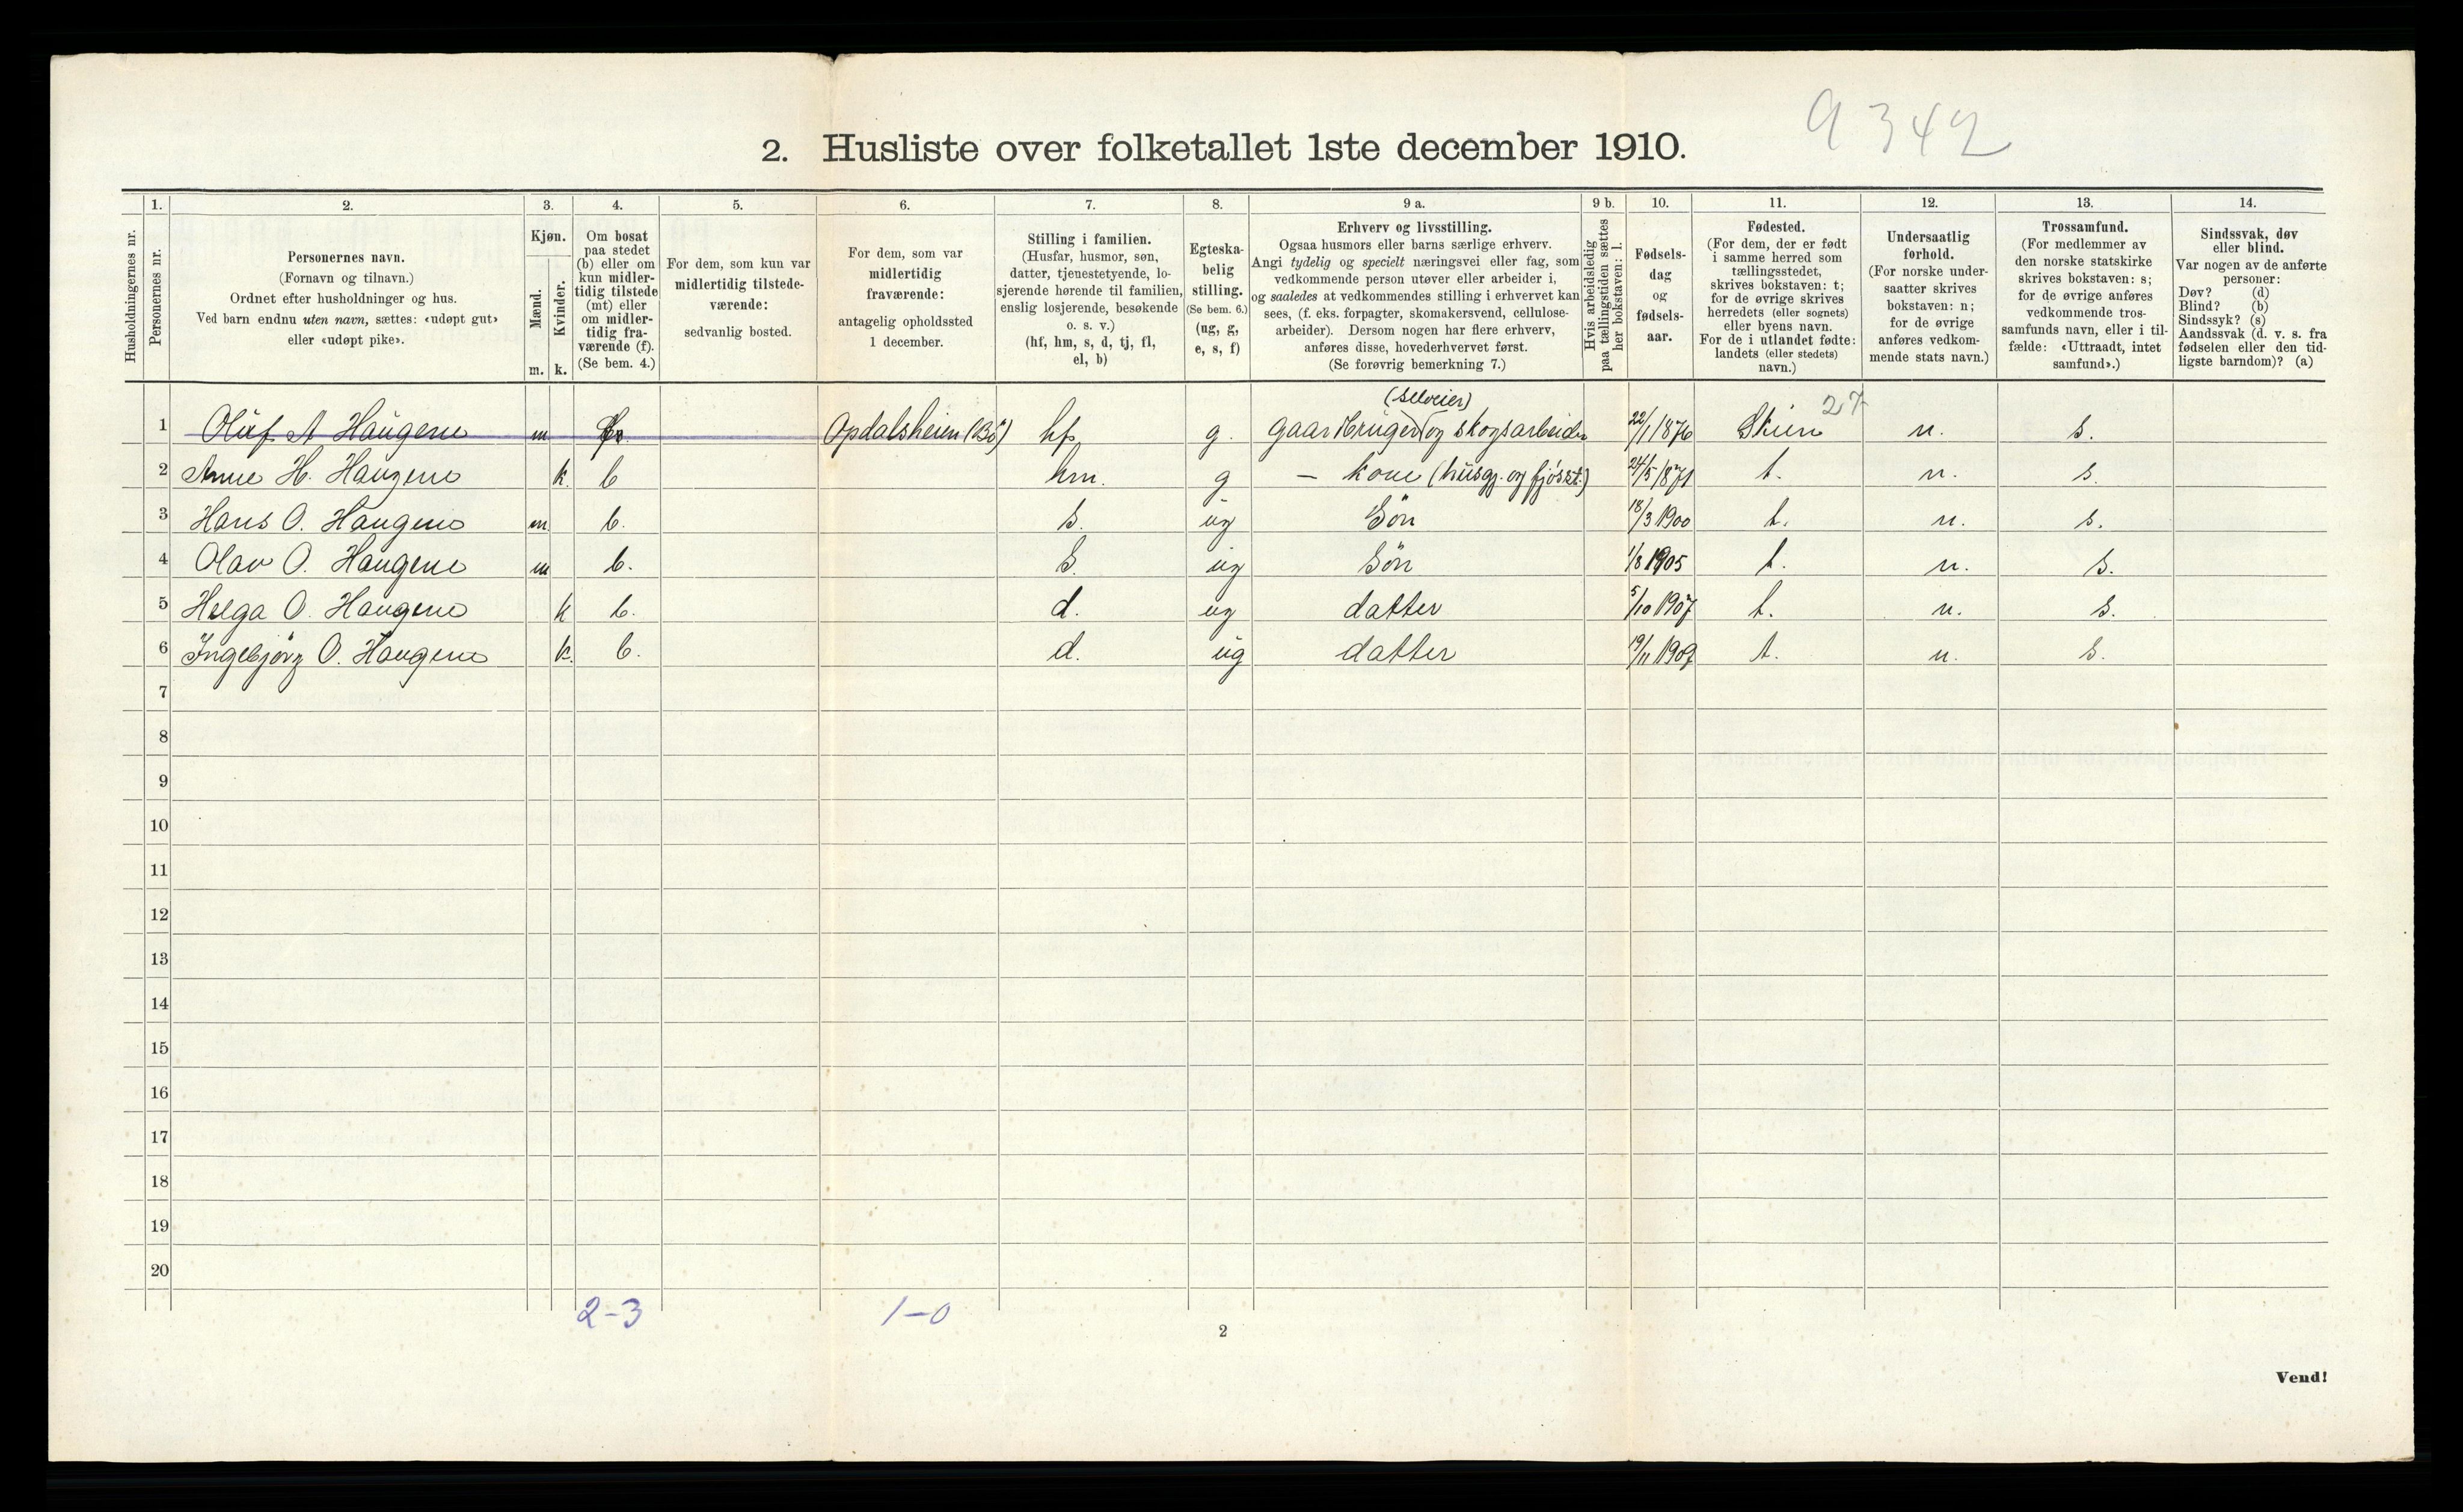 9342
2. Husliste over folketallet 1ste december 1910.
Husholdningernes nr.
1.
Personernes nr.
2.
Personernes navn.
(Fornavn og tilnavn.)
Ordnet efter husholdninger og hus.
Ved barn endnu uten navn, sættes: «udøpt gut»
eller «udøpt pike».
3.
Kjøn.
Mænd.
Kvinder.
m. k.
4.
Om bosat
paa stedet
(b) eller om
kun midler-
tidig tilstede
(mt) eller
om midler-
tidig fra-
værende (f).
(Se bem. 4.)
5.
For dem, som kun var
midlertidig tilstede-
værende:
sedvanlig bosted.
6.
For dem, som var
midlertidig
fraværende:
antagelig opholdssted
1 december.
7.
Stilling i familien.
(Husfar, husmor, søn,
datter, tjenestetyende, lo-
sjerende hørende til familien,
enslig losjerende, besøkende
o. s. v.)
(hf, hm, s, d, tj, fl,
el, b)
8.
Egteska-
belig
stilling.
(Se bem. 6.)
(ug, g,
e, s, f)
9 a.
Erhverv og livsstilling.
Ogsaa husmors eller barns særlige erhverv.
Angi tydelig og specielt næringsvei eller fag, som
vedkommende person utøver eller arbeider i,
og saaledes at vedkommendes stilling i erhvervet kan
sees, (f. eks. forpagter, skomakersvend, cellulose-
arbeider). Dersom nogen har flere erhverv,
anføres disse, hovederhvervet først.
(Se forøvrig bemerkning 7.)
9 b.
Hvis arbeidsledig
paa tællingstiden sættes
her bokstaven: l.
10.
Fødsels-
dag
og
fødsels-
aar.
11.
Fødested.
(For dem, der er født
i samme herred som
tællingsstedet,
skrives bokstaven: t;
for de øvrige skrives
herredets (eller sognets)
eller byens navn.
For de i utlandet fødte:
landets (eller stedets)
navn.)
12.
Undersaatlig
forhold.
(For norske under-
saatter skrives
bokstaven: n;
for de øvrige
anføres vedkom-
mende stats navn.)
13.
Trossamfund.
(For medlemmer av
den norske statskirke
skrives bokstaven: s;
for de øvrige anføres
vedkommende tros-
samfunds navn, eller i til-
fælde: «Uttraadt, intet
samfund».)
14.
Sindssvak, døv
eller blind.
Var nogen av de anførte
personer:
Døv? (d)
Blind? (b)
Sindssyk? (s)
Aandssvak (d. v. s. fra
fødselen eller den tid-
ligste barndom)? (a)
(selveier) 27
1 Oluf A Haugene m Opdalsheien (Bö) hf. g. gaardbruger og skogsarbeider 22/1 1876 Skien n. s.
2 Anne H. Haugene k. b hm. g — kone (husgj. og fjösst.) 24/5 1871 t. n. s.
3 Hans O. Haugene m b. s. ug Sön 18/3 1900 t. n. s.
4 Olav O. Haugene m b. S. ug Sön 1/8 1905 t. n. s.
5 Helga O. Haugene k b. d. ug datter 5/10 1907 t. n. s.
6 Ingebjörg O. Haugene k. b. d. ug datter 19/11 1909 t. n. s.
7
8
9
10
11
12
13
14
15
16
17
18
19
20
2-3 1-0
2
Vend!